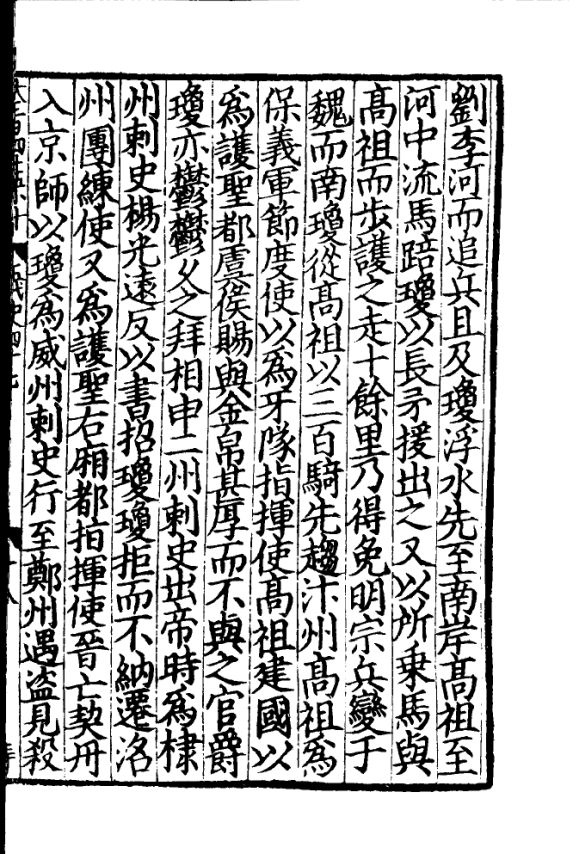 劉李河而追兵且及瓊浮水先至南岸髙祖至
河中流馬踣瓊以長矛援出之又以所乗馬與
髙祖而步護之走十餘里乃得免明宗兵變于
魏而南瓊從髙祖以三百騎先趨汴州髙祖爲
保義軍節度使以爲牙隊指揮使髙祖建國以
爲護聖都虞侯賜與金帛甚厚而不與之官爵
瓊亦鬱鬱久之拜相申二州刺史出帝時爲棣
州刺史楊光遠反以書招瓊瓊拒而不納遷洛
州團練使又爲護聖右廂都指揮使晉亡契丹
入京師以瓊爲威州刺史行至鄭州遇盗見殺